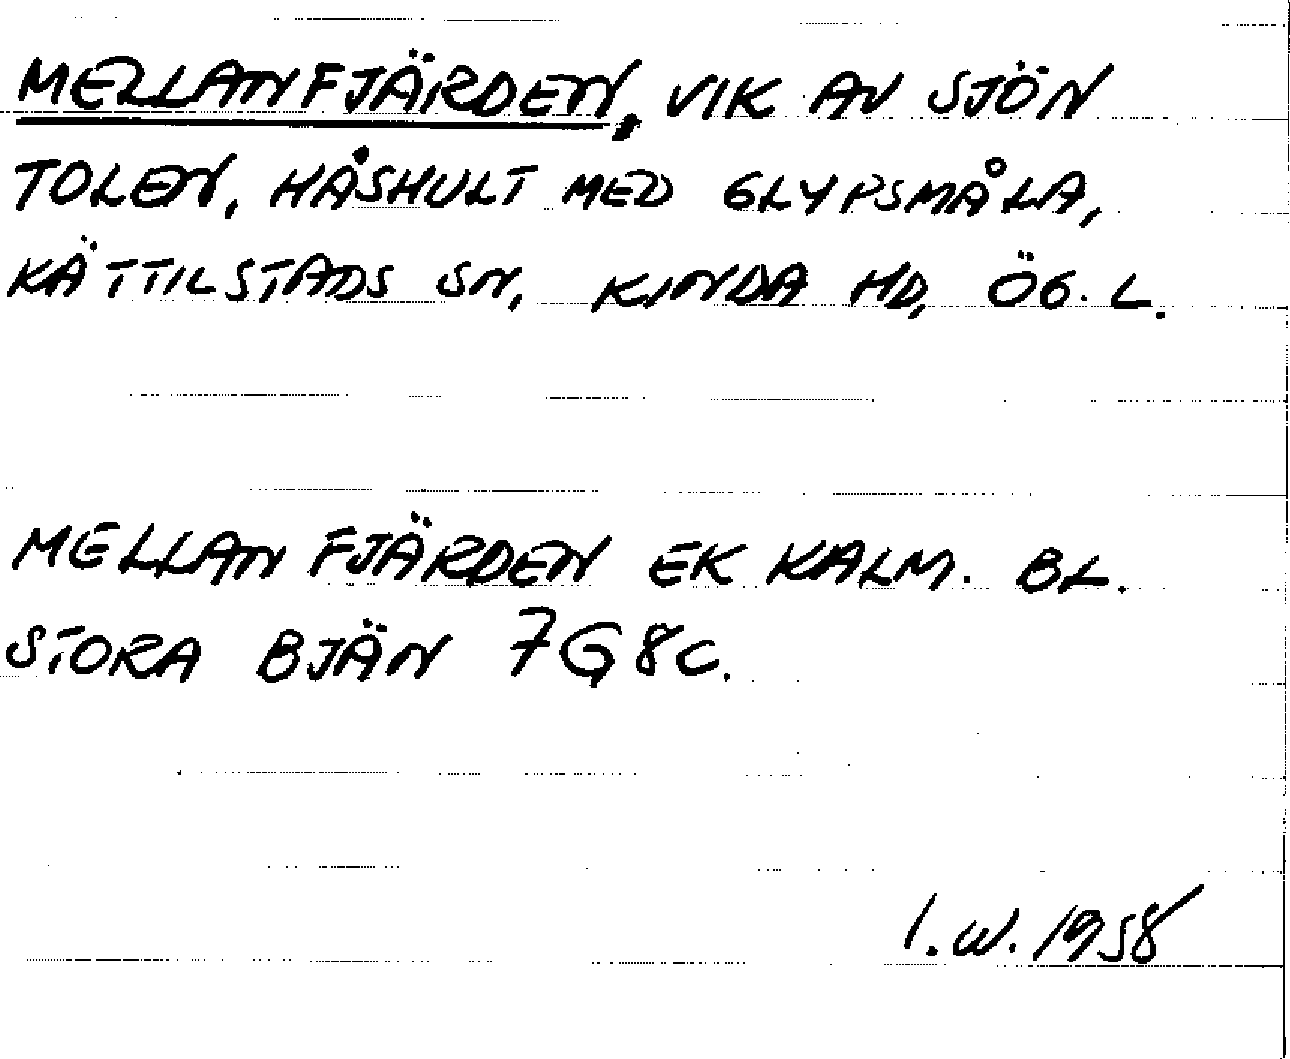 MELLANFJÄRDEN, VIK AV SJÖN
TOLEN, HÅSHULT MED GLYPSMÅLA,
KÄTTILSTADS SN, KINDA HD, ÖG. L.
MELLANFJÄRDEN EK KALM. BL.
STORA BJÄN 7G8C.
I.W. 1958